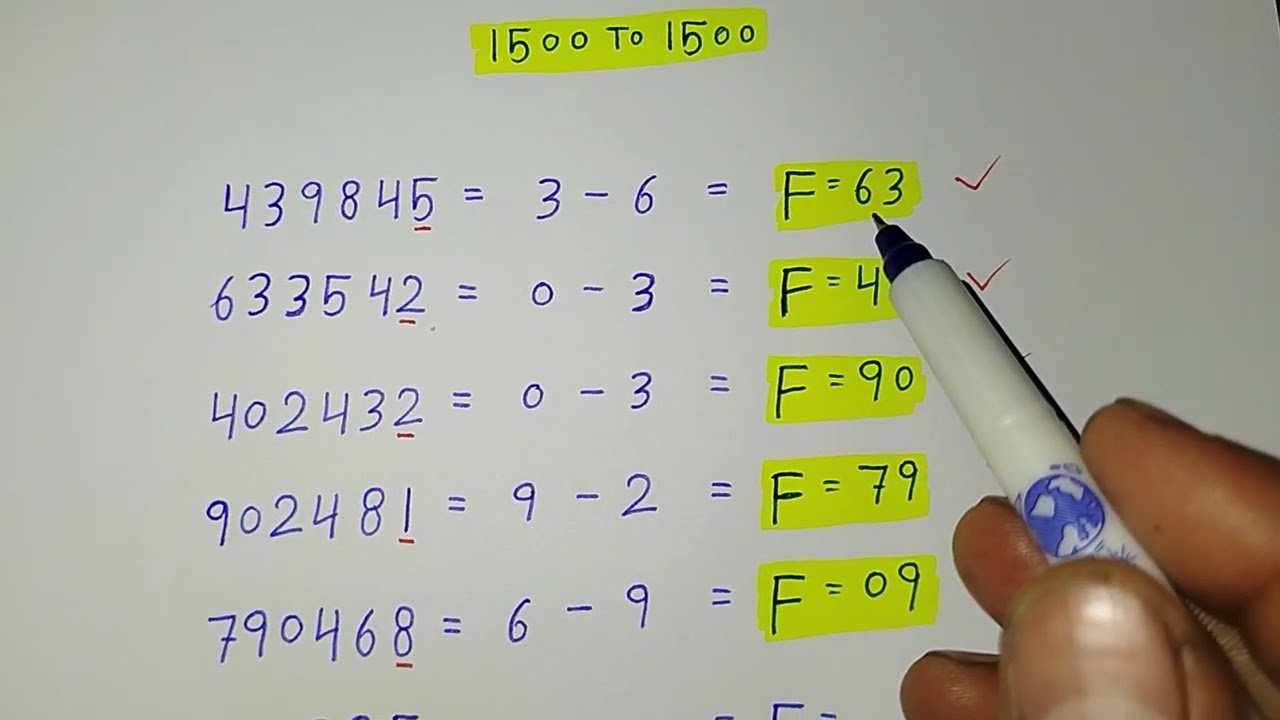 1500 TO 1500
439845 = 3 - 6 = F = 63 ✓
633542 = 0 - 3 = F = 4 ✓
402432 = 0 - 3 = F = 90
902481 = 9 - 2 = F = 79
790468 = 6 - 9 = F = 09
= F =